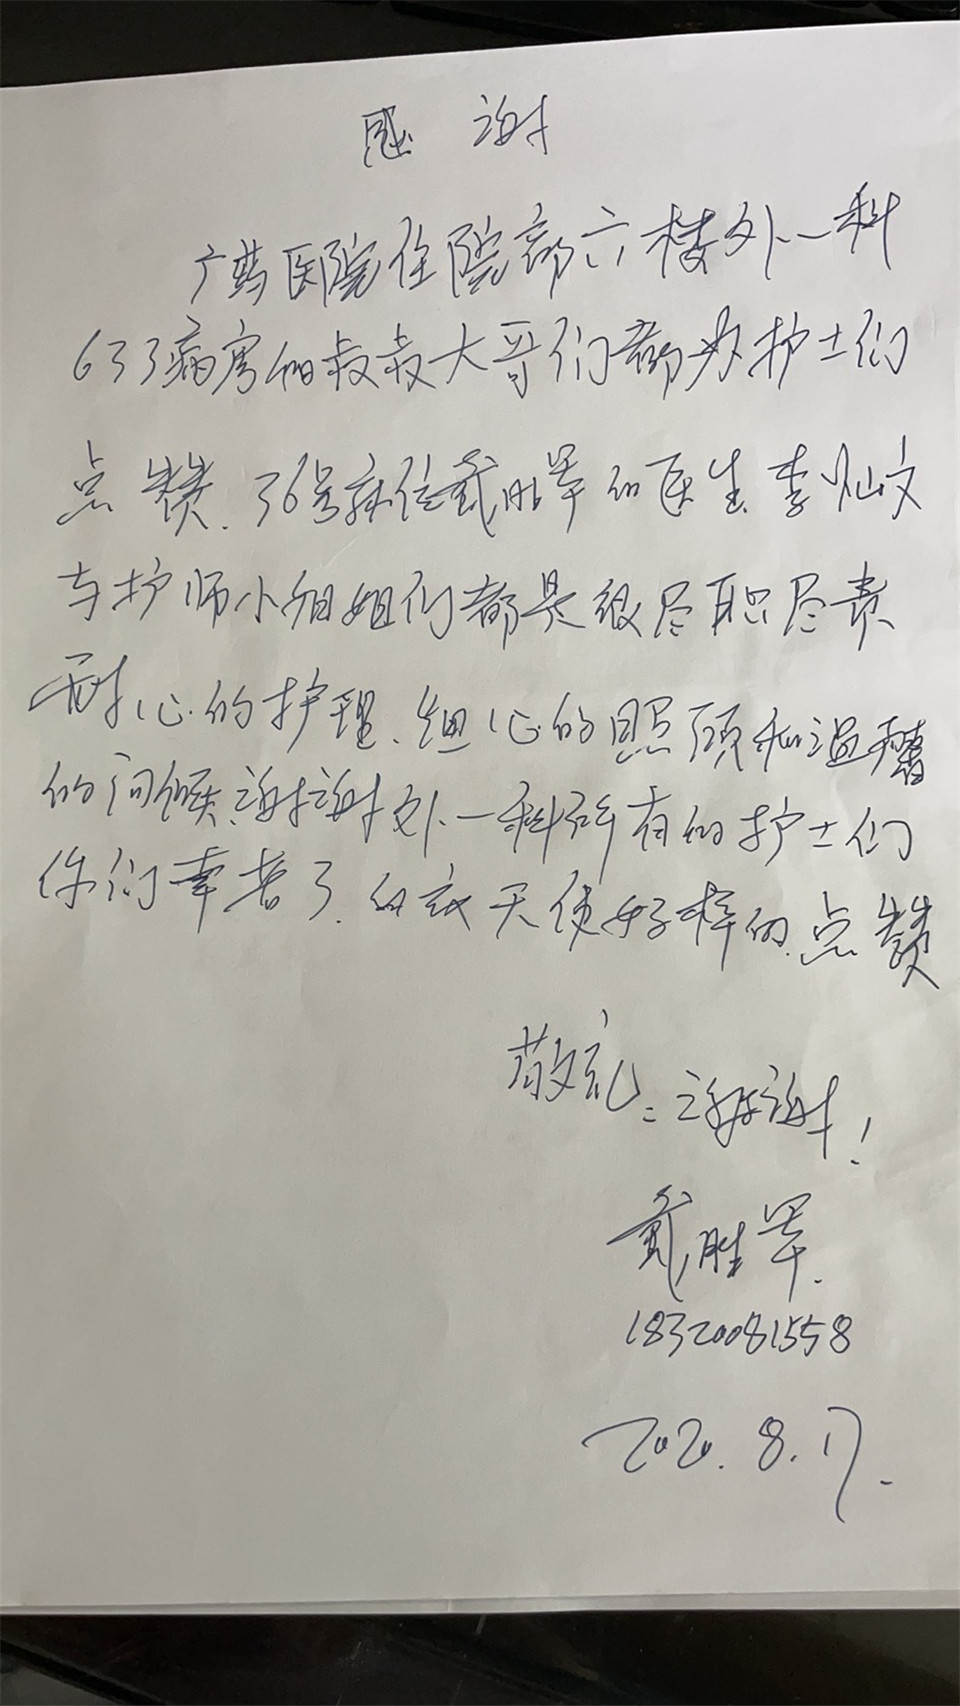 感 谢
广药医院住院部六楼外一科
633病房的叔叔大哥们都为护士们
点赞、36号床位戴胜军的医生李灿文
与护师小姐姐们都是很尽职尽责
耐心的护理、细心的照顾和温馨
的问候、谢谢外一科所有的护士们
你们幸苦了、白衣天使好样的、点赞
敬礼：谢谢！
戴胜军
18320081558
2020.8.17.